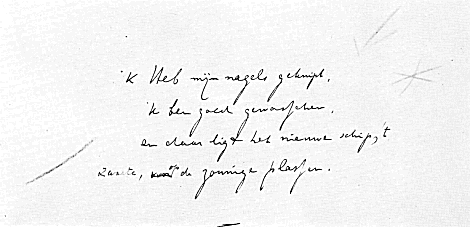 'k Heb mijn nagels geknipt,
'k ben goed gewasschen,
en daar ligt het nieuwe schip,'t
zwarte, op de zonnige plassen.